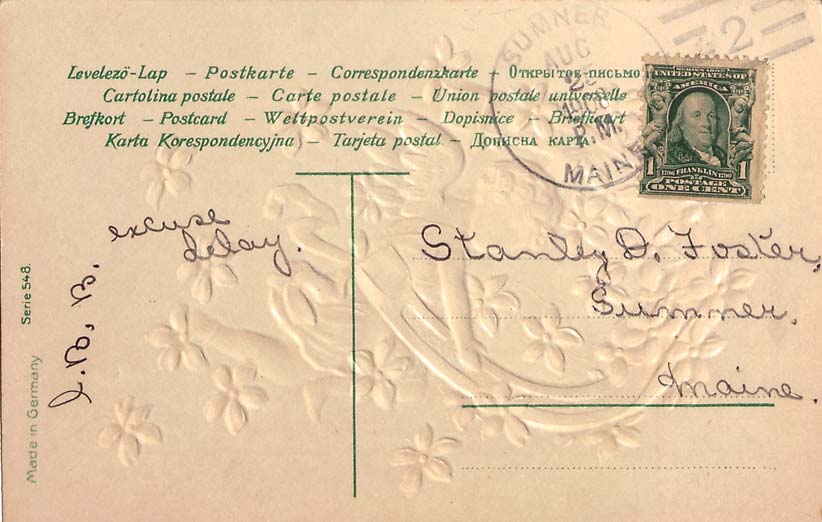 Levelezö-Lap – Postkarte – Correspondenzkarte – Открытое-письмо
Cartolina postale – Carte postale – Union postale universelle
Brefkort – Postcard – Weltpostverein – Dopisnice – Briefkaart
Karta Korespondencyjna – Tarjeta postal – Дописна карта
SUMNER
AUG
P.M.
MAINE
2
SERIES 1902
UNITED STATES OF AMERICA
1 1706 FRANKLIN 1790 1
POSTAGE
ONE CENT
excuse
delay.
Stanley D. Foster,
Sumner,
Maine.
Made in Germany Serie 548.